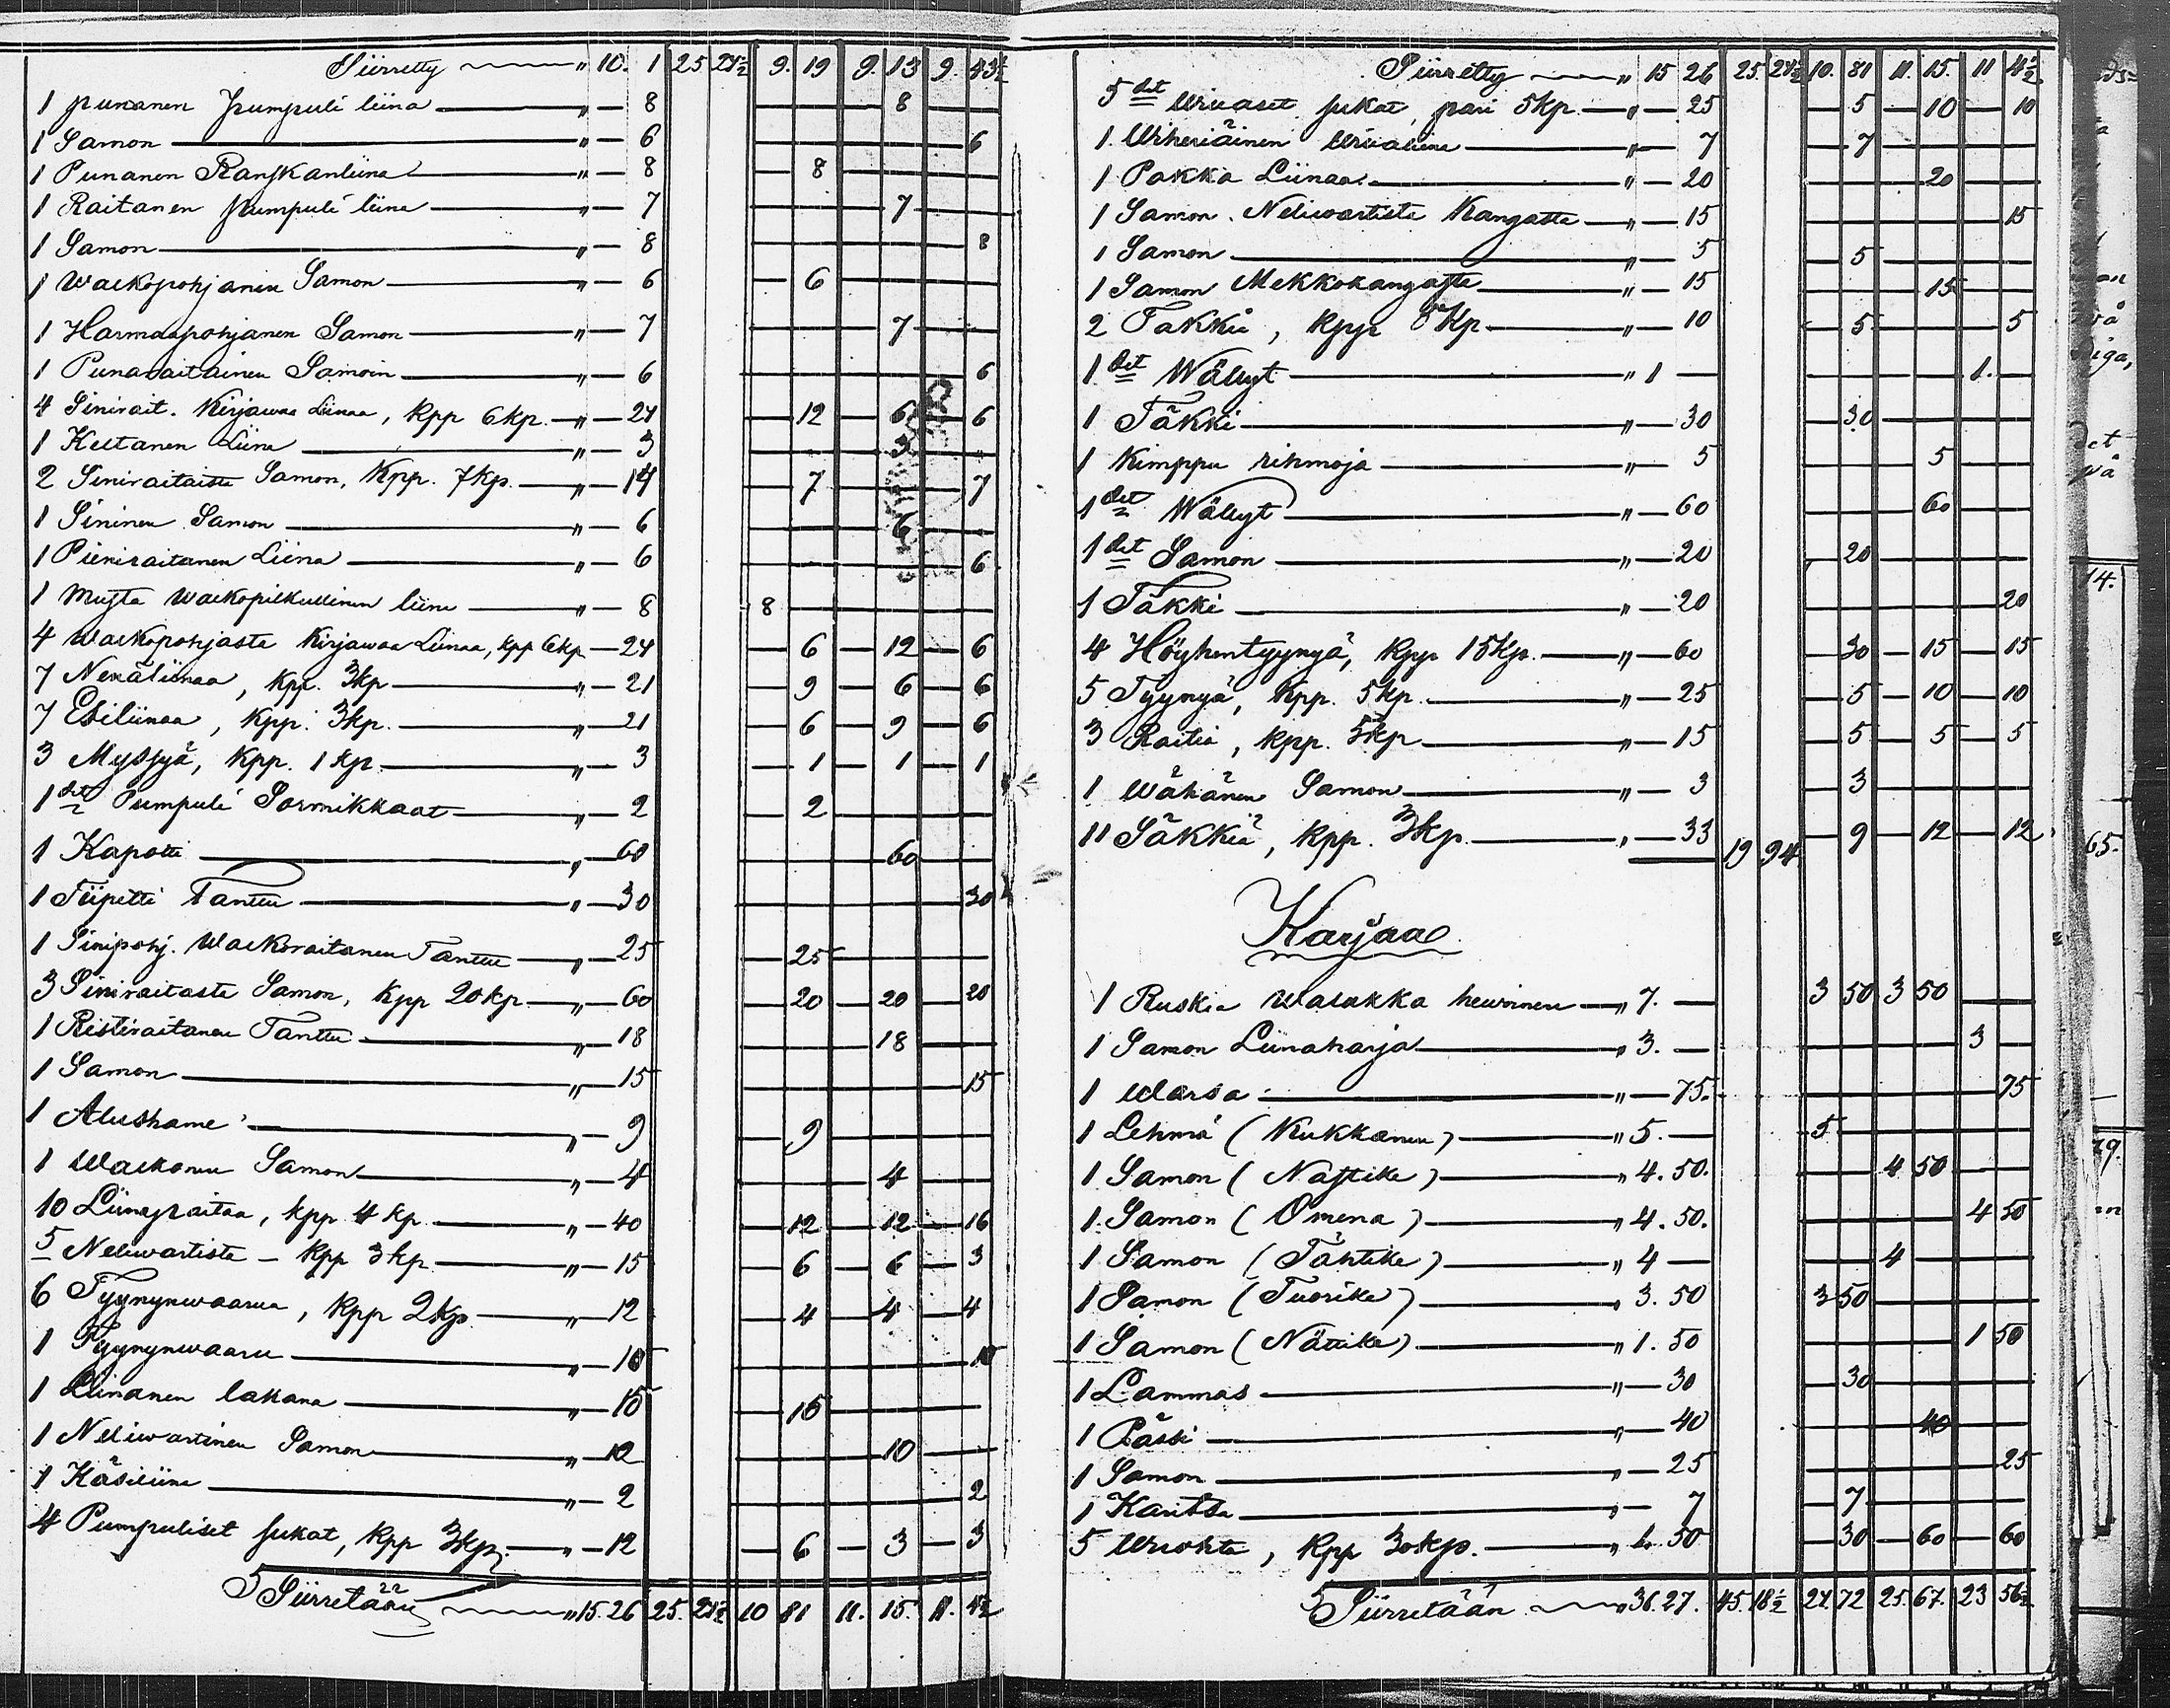 Siirretty " 10. 1 25 24½ 9. 19 9. 13 9. 43½
1 punanen pumpuli liina " — 8 8
1 Samon " — 6 6
1 Punanen Ranskanliina " — 8 8
1 Raitanen pumpuli liina " — 7 7
1 Samon " — 8 8
1 Walkopohjanen Samon " — 6 6
1 Harmaapohjanen Samon " — 7 7
1 Punaraitainen Samoin " — 6 6
4 Sinirait. Kirjawaa Liinaa, Kpp 6 kp. " — 24 12 6 6
1 Keltanen Liina " — 3 3
2 Siniraitaista Samon, Kpp. 7 kp. " — 14 7 7
1 Sininen Samon " — 6 6
1 Pieniraitanen Liina " — 6 6
1 Musta Walkopilkullinen liina " — 8 8
4 Walkopohjasta Kirjawaa Liinaa, kpp 6 kp — 24 6 12 6
7 Nenäliinaa, kpp. 3 kp " — 21 9 6 6
7 Esiliinaa, Kpp. 3 kp. " — 21 6 9 6
3 Myssyä, Kpp. 1 kp. " — 3 1 1 1
1 det Pumpuli Sormikkaat " — 2 2
1 Kapotti " — 60 60
1 Tiipetti Tanttu " — 30 30
1 Sinipohj. Walkoraitanen Tanttu " — 25 25
3 Siniraitasta Samon, Kpp 20 kp " — 60 20 20 20
1 Ristiraitanen Tanttu " — 18 18
1 Samon " — 15 15
1 Alushame " — 9 9
1 Walkonen Samon " — 4 4
10 Liinasraitaa, kpp 4 kp. " — 40 12 12 16
5 Neliwartista — Kpp 3 kp. " — 15 6 6 3
6 Tyynynwaarua, Kpp 2 kp. " — 12 4 4 4
1 Tyynynwaaru " — 10 10
1 Liinanen lakana " — 15 15
1 Neliwartinen Samon " — 10 10
1 Käsiliina " — 2 2
4 Pumpuliset sukat, Kpp 3 kp. " — 12 6 3 3
Siirretään " 15. 26 25. 24½ 10 81 11. 15. 11. 4½
Siirretty " 15 26 25. 24½ 10. 81 11. 15. 11 4½
5 det Willaset sukat, pari 5 kp. " — 25 5 10 10
1 Wiheriäinen Willaliina " — 7 7
1 Pakka Liinaa " — 20 20
1 Samon Neliwartista Kangasta " — 15 15
1 Samon " — 5 5
1 Samon Mekkokangasta " — 15 15
2 Takkia, Kpp 5 kp " — 10 5 5
1 det Wällyt " 1 — 1.
1 Täkki " — 30 30
1 Kimppu rihmoja " — 5 5
1 det Wällyt " — 60 60
1 det Samon " — 20 20
1 Täkki " — 20 20
4 Höyhentyynyä, Kpp 15 kp. " — 60 30 15 15
5 Tyynyä, Kpp. 5 kp. " — 25 5 10 10
3 Raitia, kpp. 5 kp " — 15 5 5 5
1 Wähänen Samon " — 3 3
11 Säkkiä, kpp. 3 kp. " — 33 19 94 9 12 12
Karjaa
1 Ruskia Walakka hewoinen " 7. — 3 50 3 50
1 Samon Liinaharja " 3. — 3
1 Warsa " — 75. 75
1 Lehmä (Kukkanen) " 5. — 5
1 Samon (Nastike) " 4. 50. 4 50
1 Samon (Omena) " 4. 50. 4 50
1 Samon (Tähtike) " 4 — 4
1 Samon (Tuorike) " 3. 50 3 50
1 Samon (Nättike) " 1. 50 1 50
1 Lammas " — 30 30
1 Pässi " — 40 40
1 Samon " — 25 25
1 Karitsa " — 7 7
5 Wuohta, Kpp 30 kp. " 1. 50 30 60 60
Siirretään " 36. 27. 45. 18½ 24. 72 25. 67. 23 56½